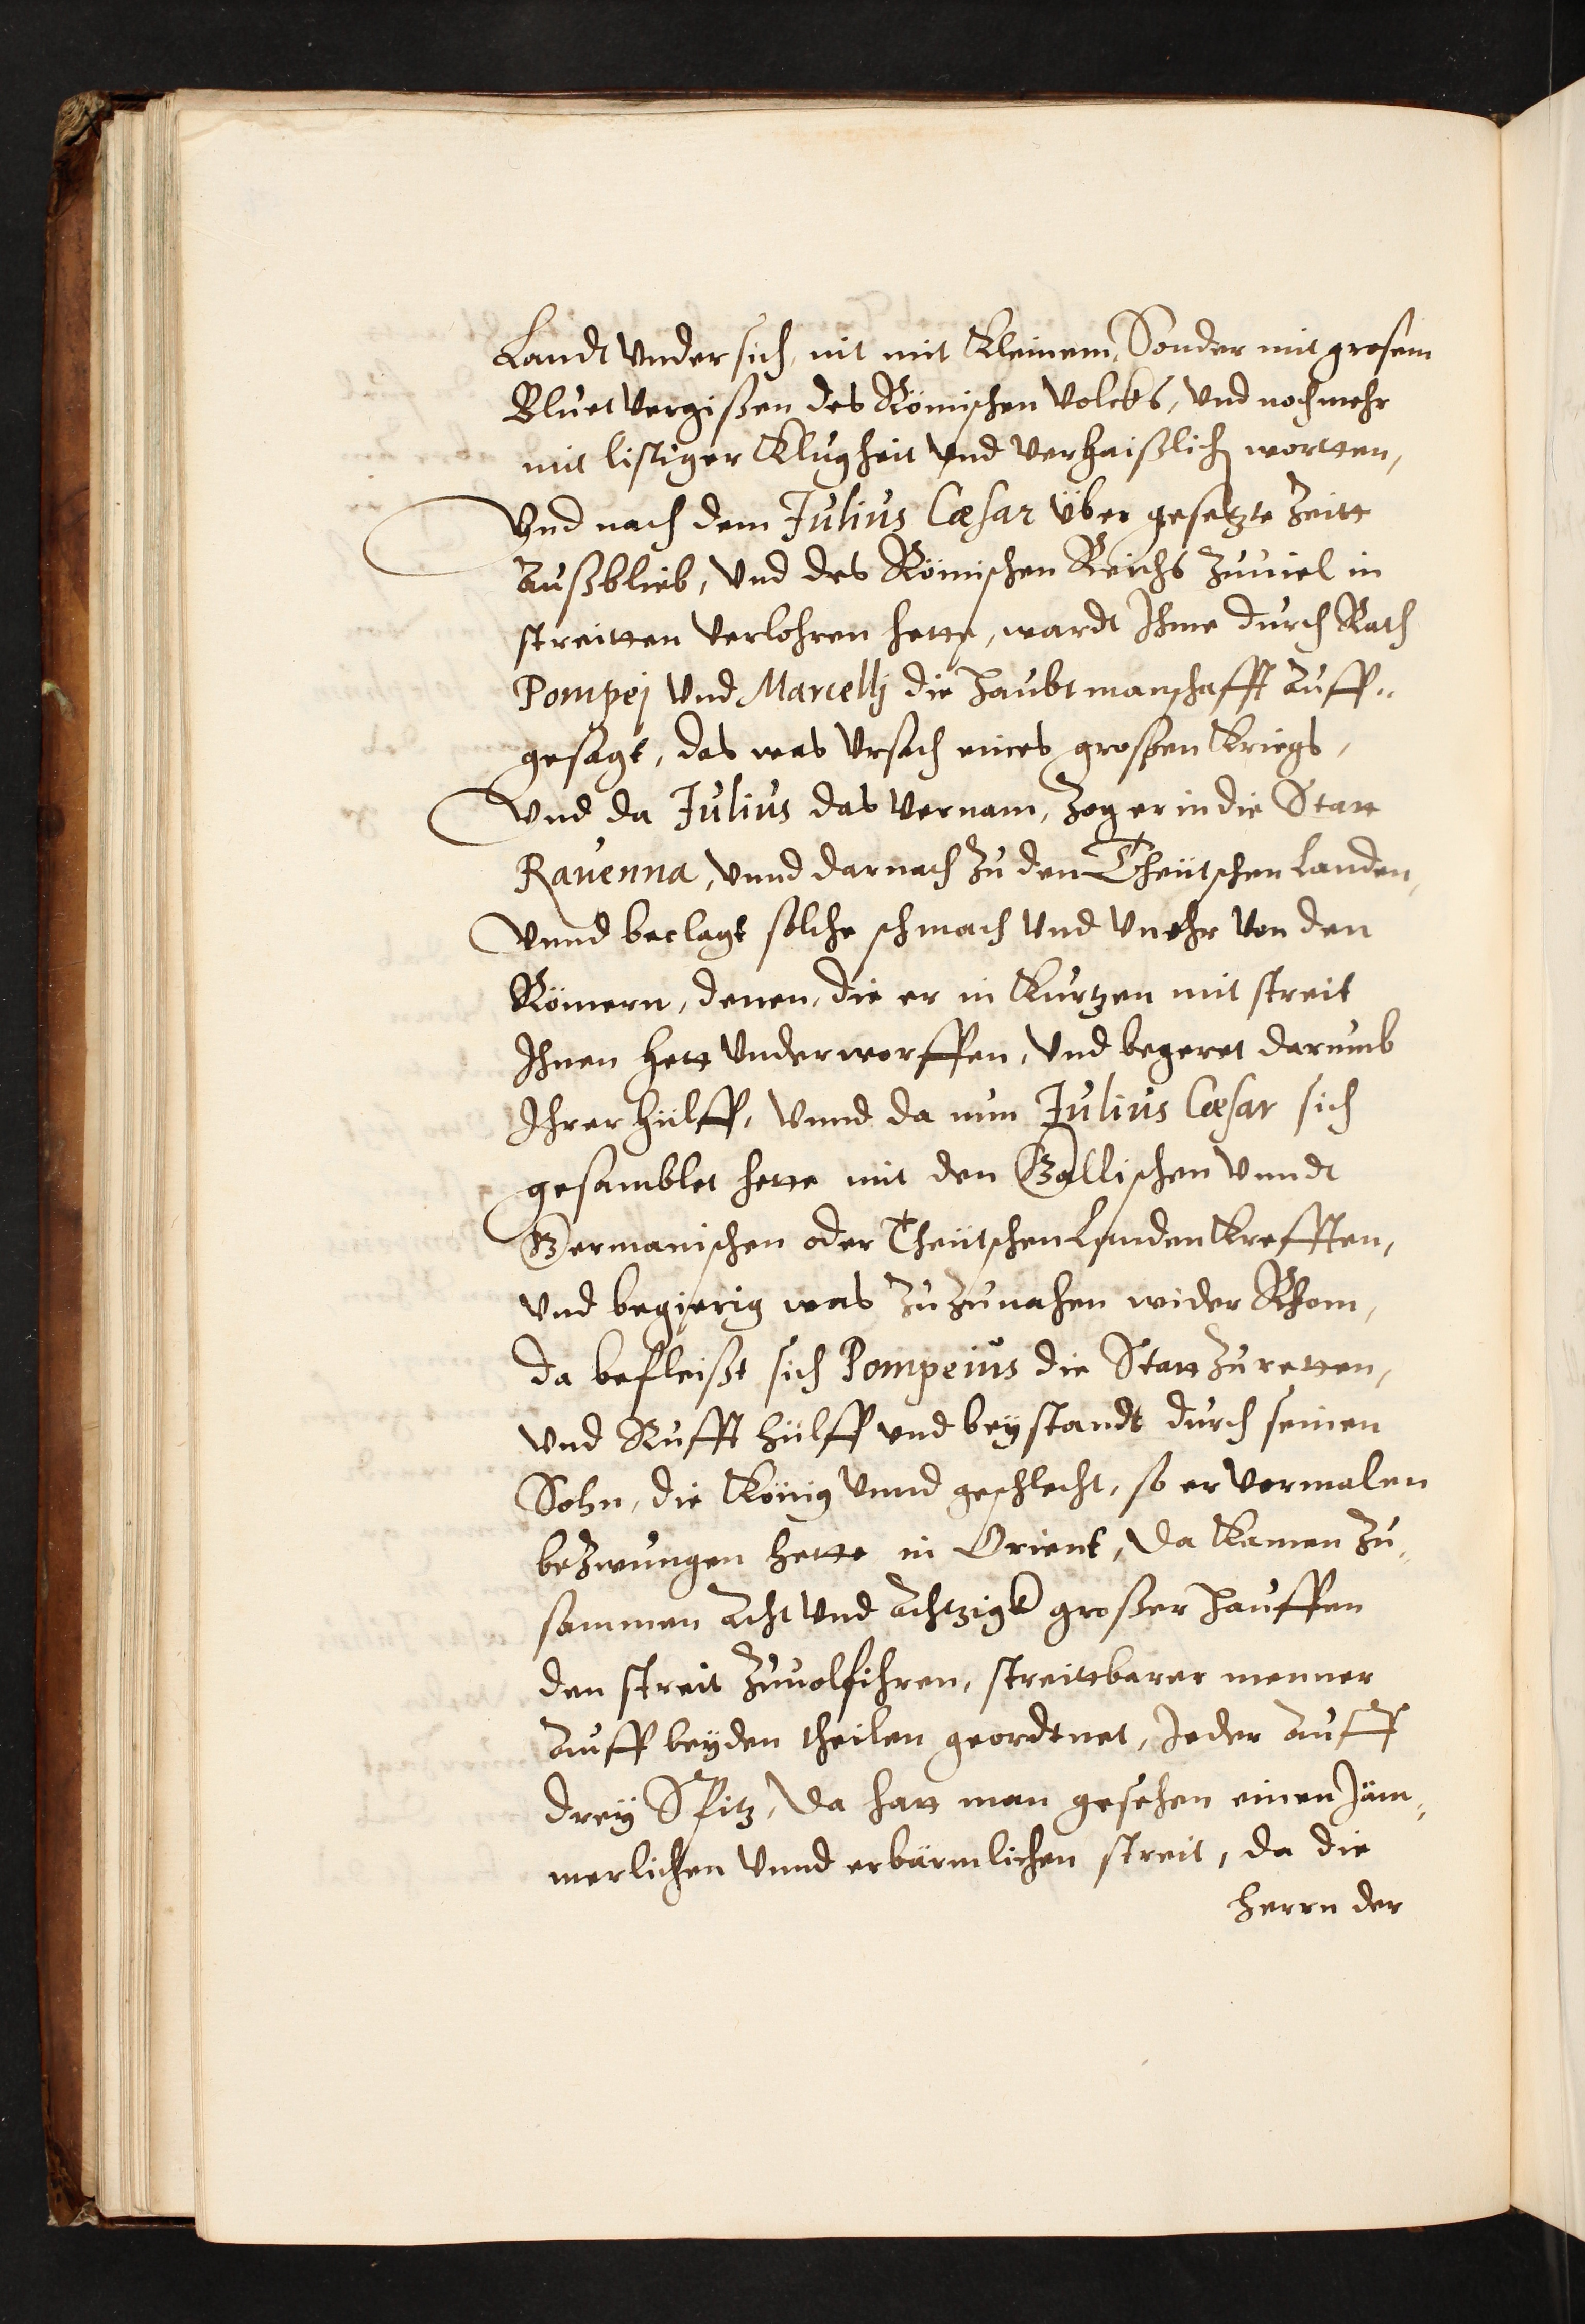 Landt vnder sich, nit mit Kleinem, Sonder mit grosem
Bluet vergißen des Römischen volcks, vnd noch mehr
mit listiger Klugheit vnd verhaißlich wortten,
Vnd nach dem Julius Cæsar über gesetzte Zeitt
Außblieb, vnd des Römischen Reichs zuuiel in
streitten verlohren hette, wardt Ihme durch Rath
Pompej vnd Marcellj die Haubtmanschafft Auff„
gesagt, das was vrsach eines großen Kriegs,
Vnd da Julius das vernam, zog er in die Statt
Rauenna, vnnd darnach zu den Theütschen Landen,
Vnnd beclagt solche schmach vnd vnehr von den
Römern, denen, die er in Kurtzen mit streit
Ihnen hett vnderworffen, vnd begeret darumb
Ihrer hülff, vnnd da nun Julius Cæsar sich
gesamblet hette mit den Gallischen vnndt
Germanischen oder Theütschen Landen Krefften,
vnd begierig was zuzunahen wider Rhom,
da befleißt sich Pompeius die Statt zu retten,
vnd Rufft hülff vnd beÿstandt durch seinen
Sohn, die König vnnd geschlecht, so er vormalen
bezwungen hette in Orient, da Kamen zu„
sammen Acht vnd Achtzigk großer Hauffen
den streit zuuolfihren, streittbarer menner
Auff beÿden theilen geordtnet, Jeder Auff
dreÿ Spitz, da hatt man gesehen einen Jäm„
merlichen vnnd erbärmlichen streit, da die
Herrn der